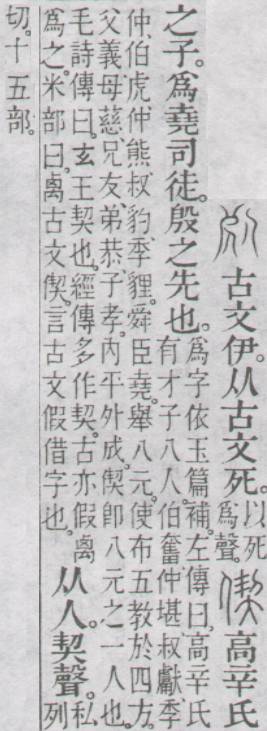 古文伊。从古文死。以死爲聲。偰高辛氏
之子。爲堯司徒。殷之先也。爲字依玉篇補。左傳曰。高辛氏
有才子八人。伯奮仲堪叔獻季
仲、伯虎仲熊叔豹季貍。舜臣堯。舉八元。使布五教於四方。
父義母慈、兄友、弟恭、子孝、內平外成。偰卽八元之一人也。
毛詩傳曰。玄王契也。經傳多作契。古亦假禼
爲之。米部曰。禼古文偰。言古文假借字也。
从人。契聲。私列
切。十五部。